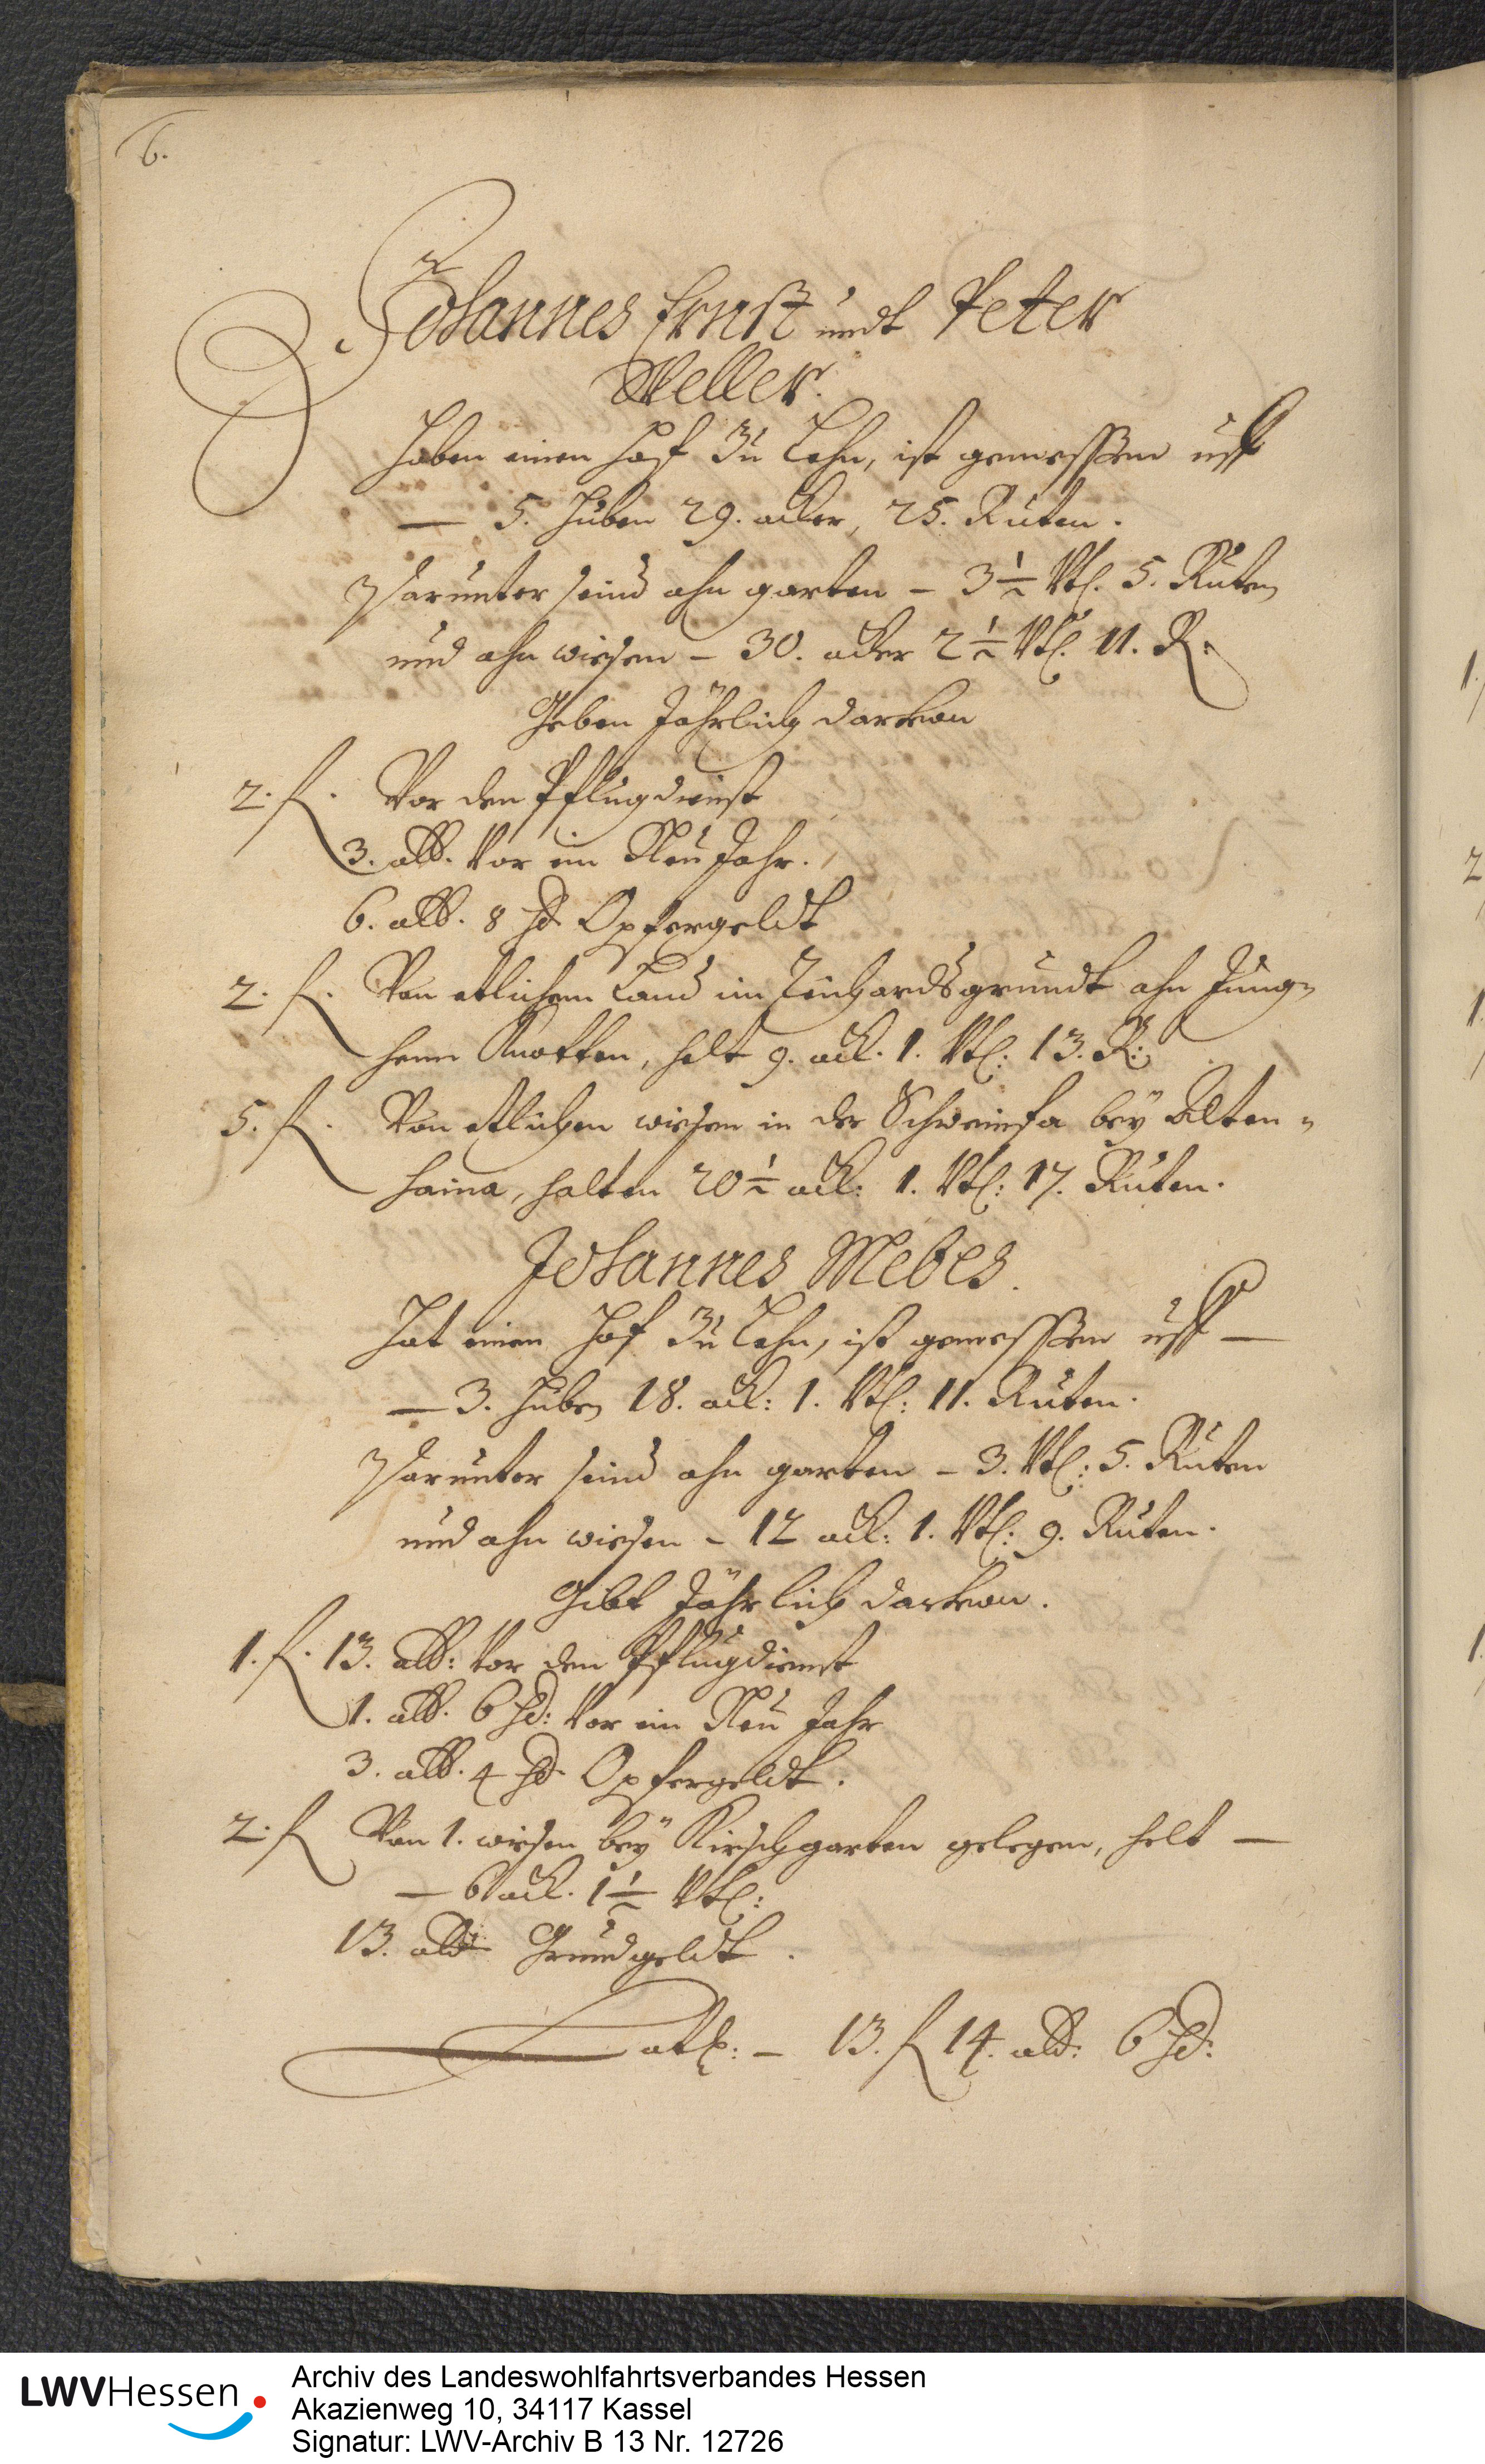 6.
Johannes Ernst undt Peter
Weller.
Haben einen Hoff zu Lehn, ist gemessen uff
— 5. Huben 29. acker, 25. Ruten.
Darunter seind ahn garten – 3½ Vtl. 5. Ruten
und ahn wiesen – 30. acker 2½ Vtl. 11. R.
Geben Jährlich darvon
2. fl. Vor den Pflugdienst
3. alb. Vor ein Neu Jahr.
6. alb. 8 hl Opfergeldt
2. fl. Von etlichem Land im grundt ahn Jung=
herr Knotten, helt 9. ack. 1. Vtl: 13. R:
5. fl. Von etlichen wiesen in der Schweinfa bey Alten=
haina, halten 20½ ack: 1. Vtl: 17. Ruten.
Johannes Mebes.
Hat einen Hof zu Lehn, ist gemessen uff —
— 3. Huben 18. ack: 1. Vtl: 11. Ruten.
Darunter seind ahn garten – 3. Vtl: 5. Ruten
und ahn wiesen – 12 ack: 1. Vtl: 9. Ruten.
Gibt Jährlich darvon.
1. fl. 13. alb: Vor den Pflugdienst
1. alb. 6 hl: Vor ein Neu Jahr
3. alb. 4 hl Opfergeldt.
2. fl Von 1. wiesen bey Kirschgarten gelegen, helt —
— 6 ack. 1½ Vtl:
13. alb Grundgeldt.
Latg: – 13. fl 14. alb: 6 hl:
LWVHessen
Archiv des Landeswohlfahrtsverbandes Hessen
Akazienweg 10, 34117 Kassel
Signatur: LWV-Archiv B 13 Nr. 12726